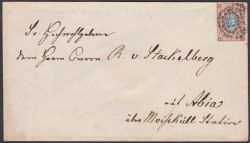 Sr Hochwohlgeboren
dem Herrn Baron R. v. Stackelberg
auf Abia
über Moiseküll Station